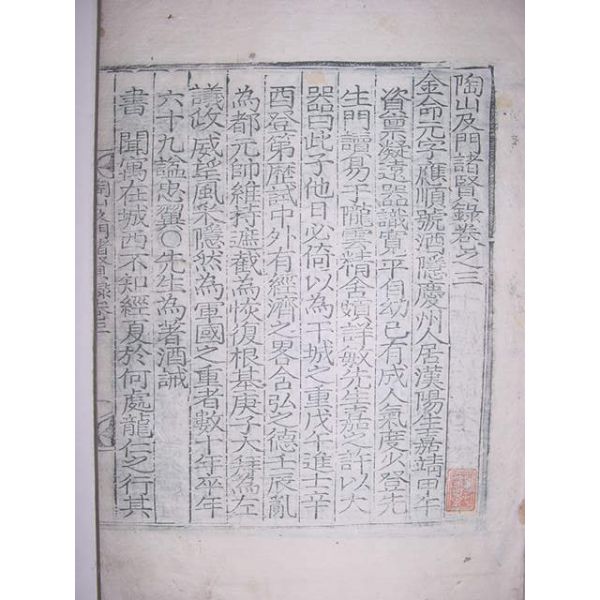 陶山及門諸賢錄卷之三
金命元字應順號酒隱慶州人居漢陽生嘉靖甲午
資稟凝遠器識寬平自幼已有成人氣度少登先
生門讀易于隴雲精舍頗詳敏先生嘉之許以大
器曰此子他日必倚以為干城之重戊午進士辛
酉登第歷試中外有經濟之畧含弘之德壬辰亂
為都元帥維持遮截為恢復根基庚子大拜為左
議政威望風采隱然為軍國之重者數十年卒年
六十九謚忠翼〇先生為著酒誡
書 聞寓在城西不知經夏於何處龍仁之行其
陶山及門諸賢錄卷三